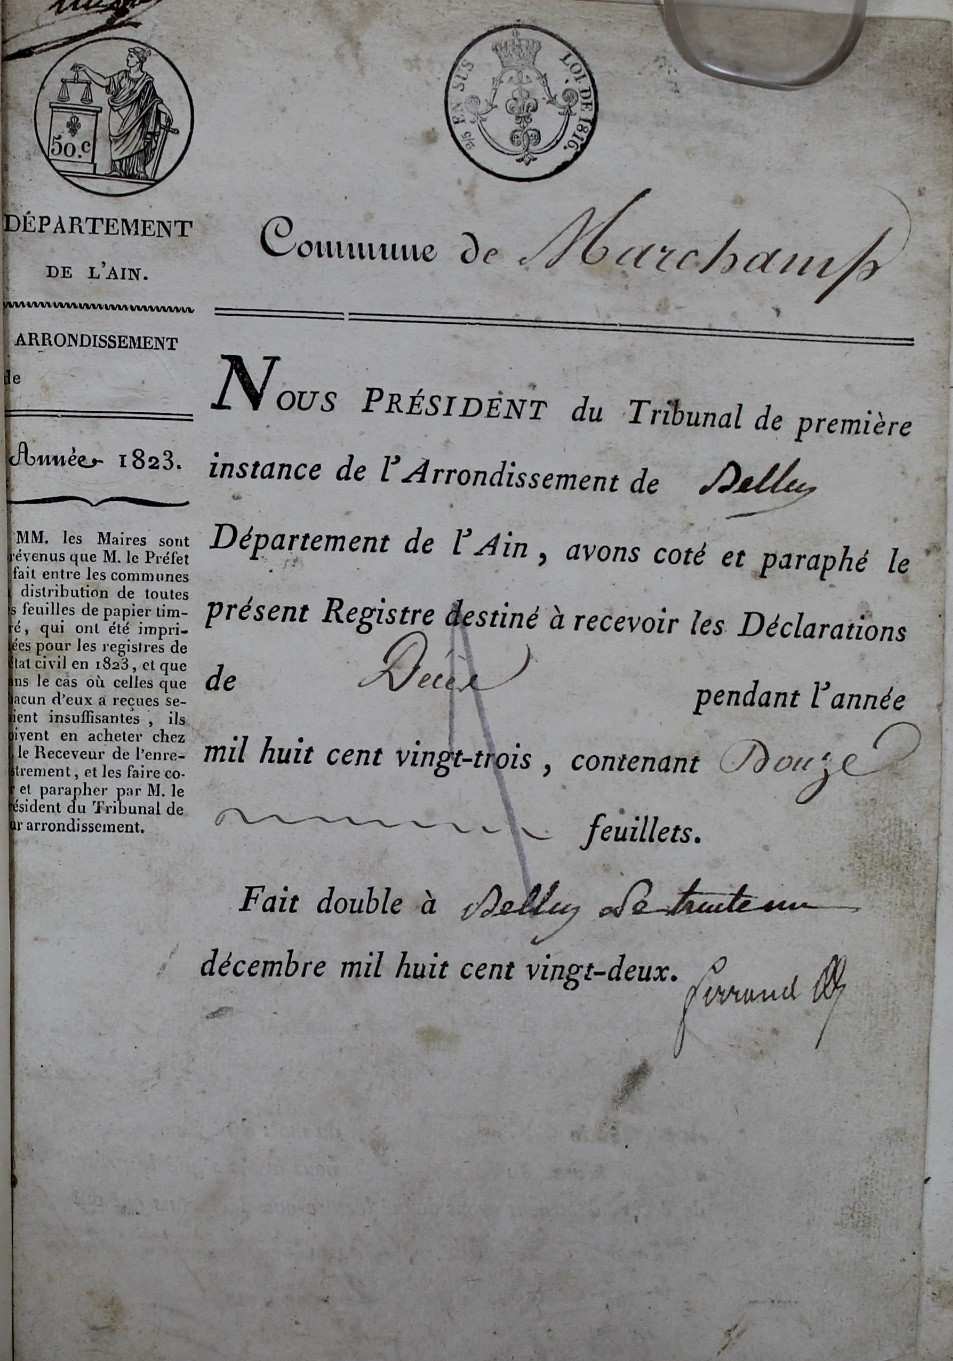 50.c
5/10 EN SUS LOI DE 1816.
DÉPARTEMENT
DE L'AIN.
ARRONDISSEMENT
de
Année 1823.
MM. les Maires sont
révenus que M. le Préfet
fait entre les communes
distribution de toutes
s feuilles de papier tim-
ré, qui ont été impri-
ées pour les registres de
état civil en 1823, et que
ans le cas où celles que
hacun d'eux a reçues se-
ient insuffisantes, ils
oivent en acheter chez
le Receveur de l'enre-
strement, et les faire co-
r et parapher par M. le
résident du Tribunal de
ur arrondissement.
Commune de Marchamp
NOUS PRÉSIDENT du Tribunal de première
instance de l'Arrondissement de Belley
Département de l'Ain, avons coté et paraphé le
présent Registre destiné à recevoir les Déclarations
de Décès pendant l'année
mil huit cent vingt-trois, contenant Douze
feuillets.
Fait double à Belley le trente un
décembre mil huit cent vingt-deux.